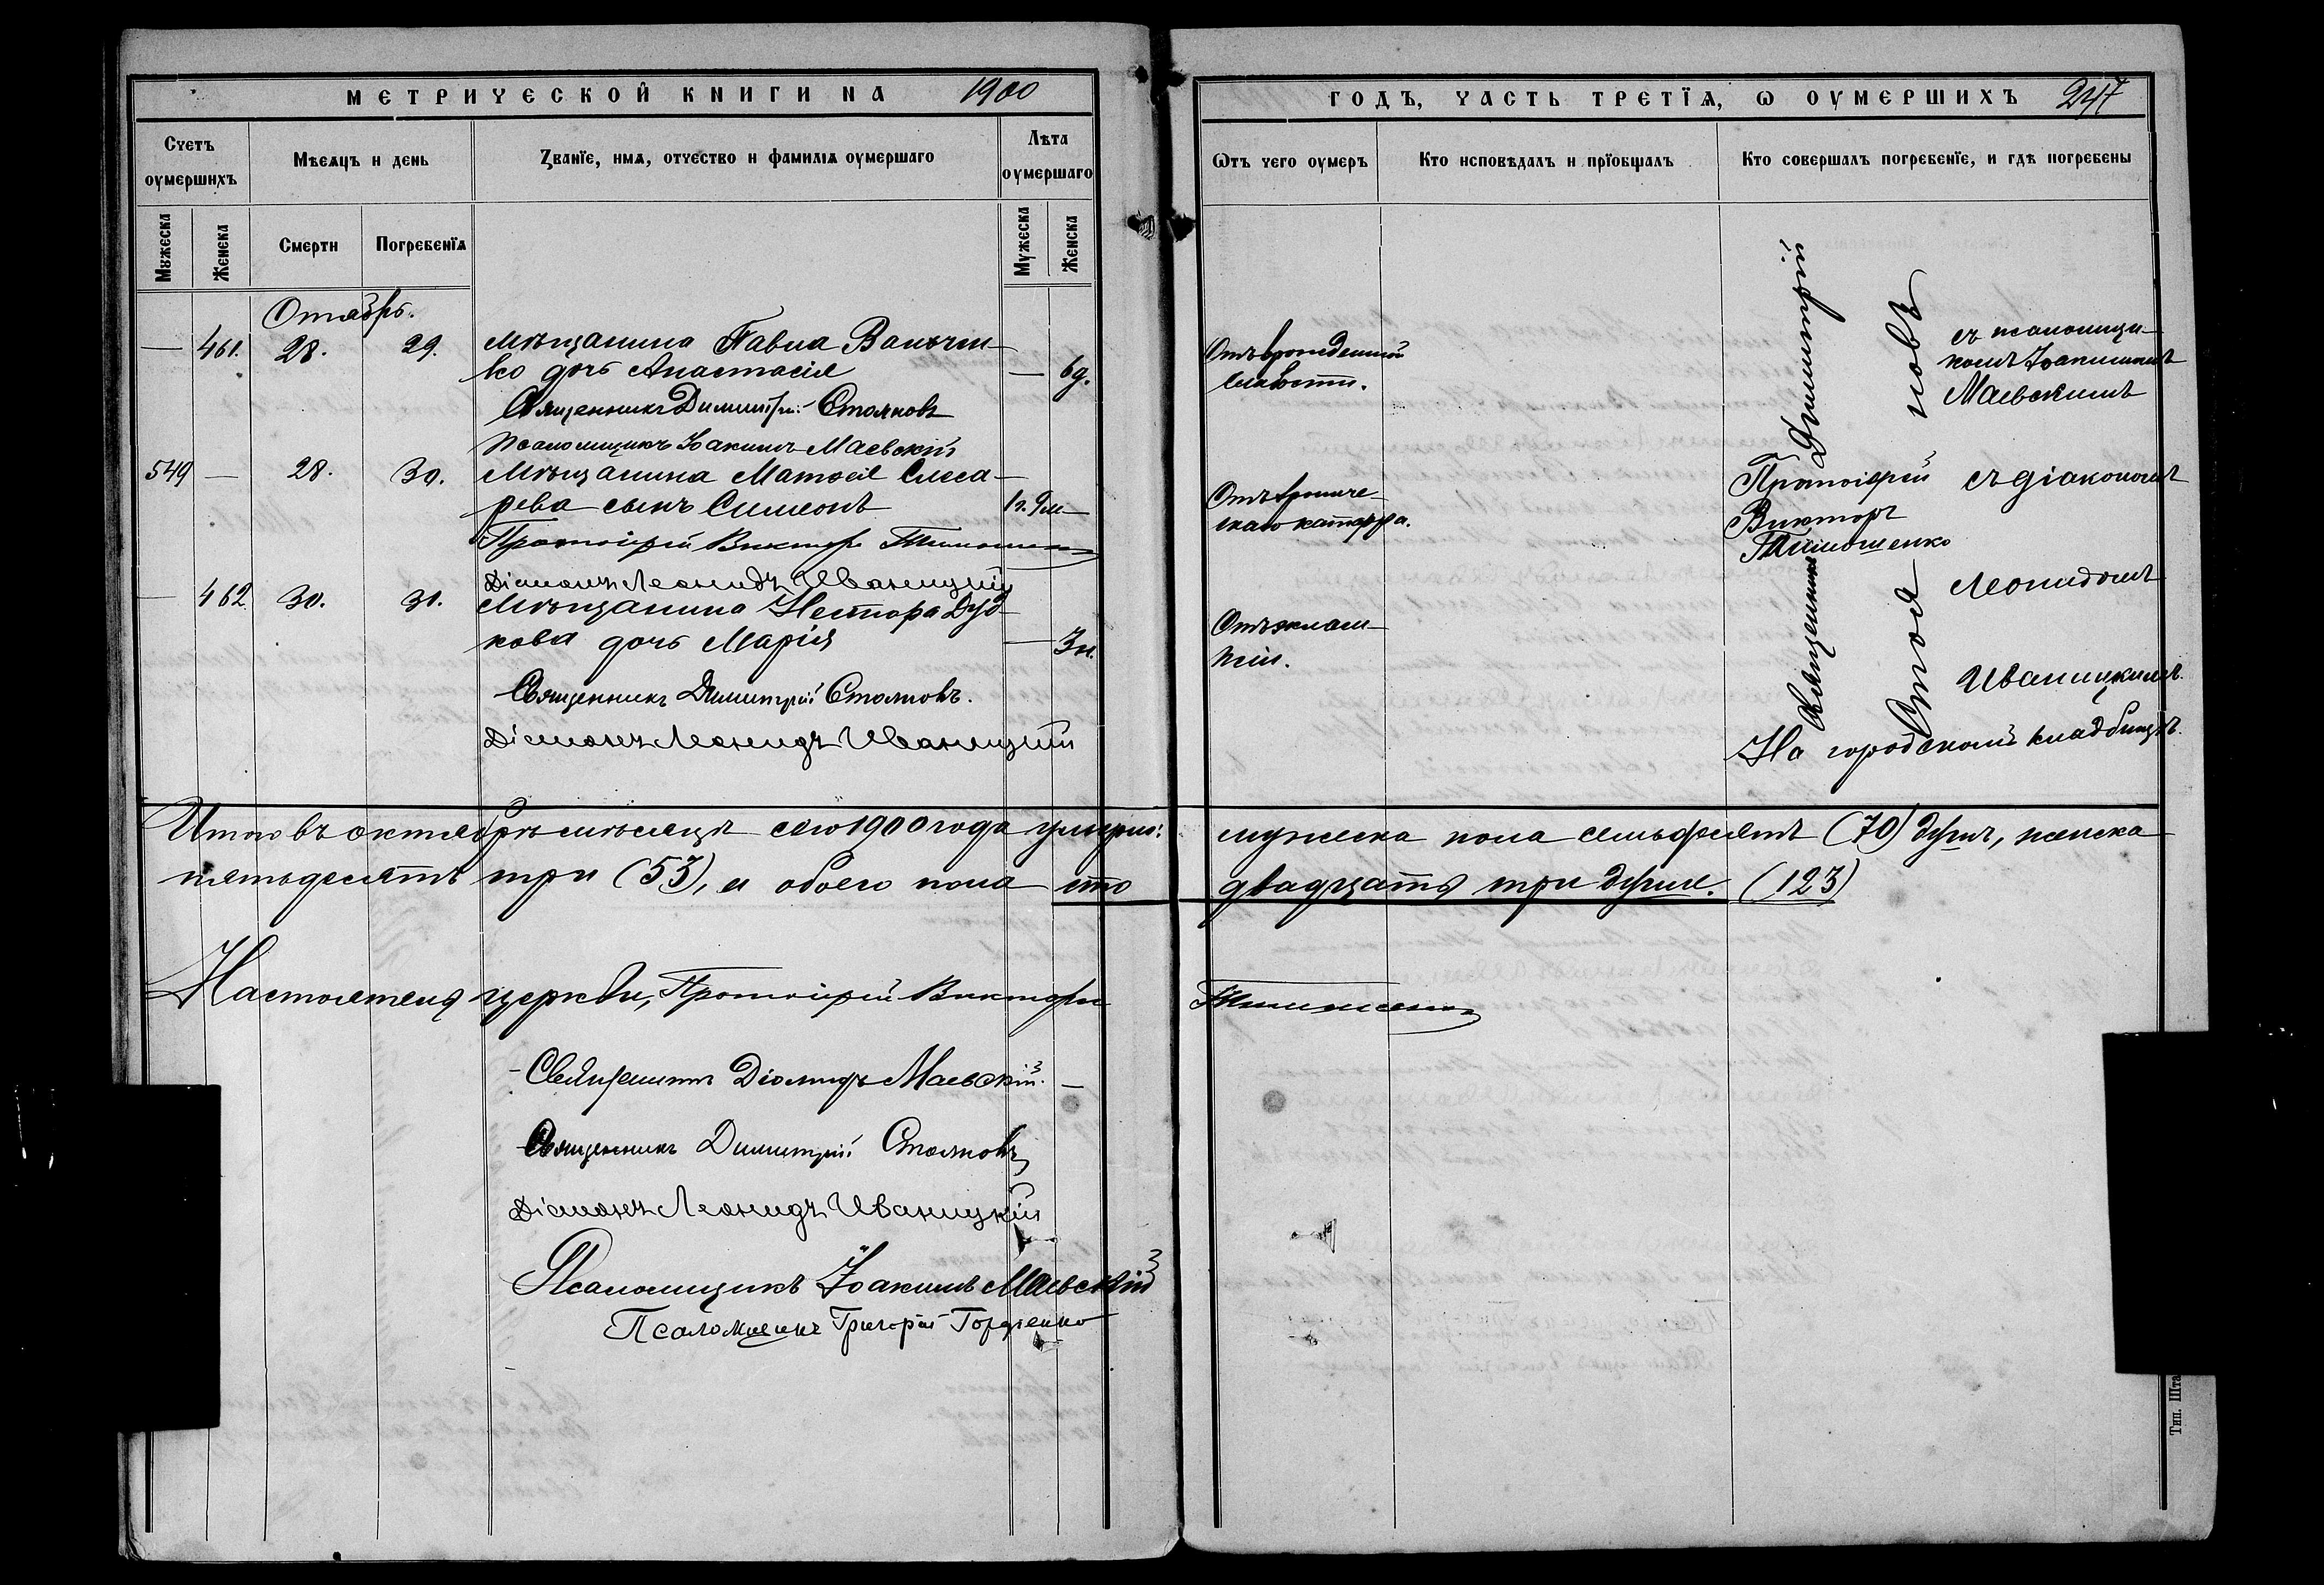 МЕТРИЧЕСКОЙ КНИГИ НА 1900
Счетъ оумершихъ
Мѣсяцъ и день
Званїе, имя, отчество и фамилїя оумершаго
Лѣта оумершаго
Мужеска
Женска
Смерти
Погребенїя
Мужеска
Женска
Октябрь.
— 461. 28. 29. Мѣщанина Павла
ко дочь Анастасія — 6 д.
Священникъ Димитрій Стояновъ
Псаломщикъ Іоакимъ Маевскій
549 — 28. 30. Мѣщанина Матөея Слеса-
рева сынъ Симеонъ 1 г. 9 м —
Протоіерей Викторъ Тимошенко
Діаконъ Леонидъ Иваницкій
— 462. 30. 31. Мѣщанина Нестора Дуд-
кова дочь Марія — 3 н.
Священникъ Димитрій Стояновъ.
Діаконъ Леонидъ Иваницкій
Итого въ октябрѣ мѣсяцѣ сего 1900 года умерло:
пятьдесятъ три (53), а обоего пола сто
Настоятель церкви, Протоіерей Викторъ
Священникъ Діомидъ Маевскій.
Священникъ Димитрій Стояновъ
Діаконъ Леонидъ Иваницкій
Псаломщикъ Іоакимъ Маевскій
Псаломщикъ Григорій Гордіенко
ГОДЪ, ЧАСТЬ ТРЕТЇЯ, Ѡ ОУМЕРШИХЪ 247
Ѿтъ чего оумеръ
Кто исповѣдалъ и прїобщалъ
Кто совершалъ погребенїе, и гдѣ погребены
Отъ врожденной
слабости.
Отъ хрониче-
скаго катарра.
Отъ эклам-
псіи.
Священникъ Димитрій
Стояновъ
съ псаломщи-
комъ Іоакимомъ
Маевскимъ
Протоіерей
Викторъ
Тимошенко
съ діакономъ
Леонидомъ
Иваницкимъ.
На городскомъ кладбищѣ.
мужеска пола семьдесятъ (70) душъ, женска
двадцать три души. (123)
Тимошенко
Тип. Шта